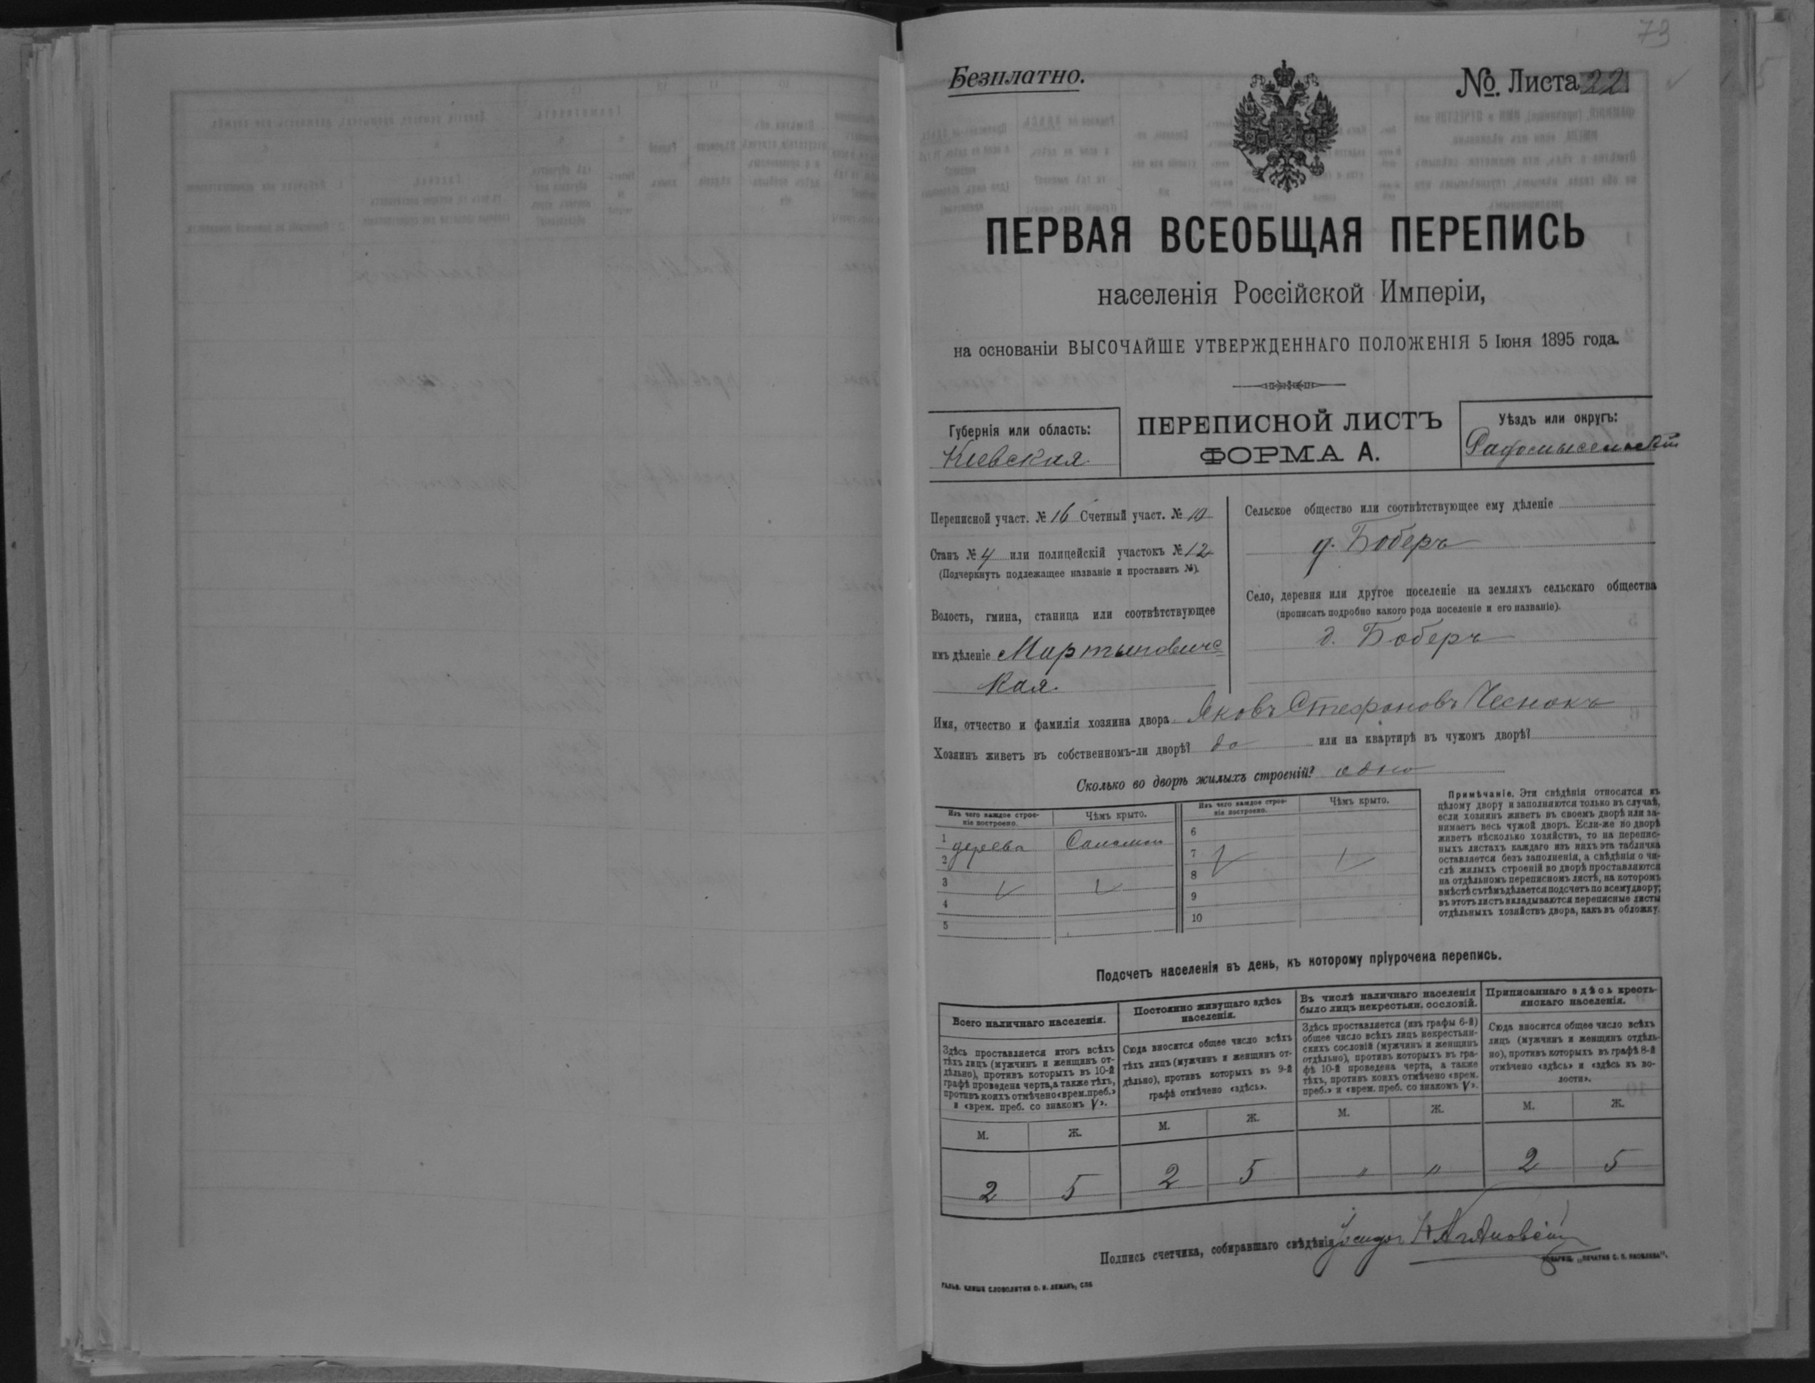 73
Безплатно.
№. Листа 22
ПЕРВАЯ ВСЕОБЩАЯ ПЕРЕПИСЬ
населенія Россійской Имперіи,
на основаніи ВЫСОЧАЙШЕ УТВЕРЖДЕННАГО ПОЛОЖЕНІЯ 5 Іюня 1895 года.
Губернія или область:
Кіевская
ПЕРЕПИСНОЙ ЛИСТЪ
ФОРМА А.
Уѣздъ или округъ:
Радомысельскій
Переписной участ. № 16 Счетный участ. № 10
Станъ № 4 или полицейскій участокъ № 12
(Подчеркнуть подлежащее названіе и проставить №).
Волость, гмина, станица или соотвѣтствующее
имъ дѣленіе Мартыновичс
кая.
Сельское общество или соотвѣтствующее ему дѣленіе
д. Боберъ
Село, деревня или другое поселеніе на земляхъ сельскаго общества
(прописать подробно какого рода поселеніе и его названіе).
д. Боберъ
Имя, отчество и фамилія хозяина двора Яковъ Стефановъ Чеснокъ
Хозяинъ живетъ въ собственномъ-ли дворѣ? да или на квартирѣ въ чужомъ дворѣ?
Сколько во дворѣ жилыхъ строеній? одно
Изъ чего каждое строе-
ніе построено.
Чѣмъ крыто.
1 дерева Саломой
2
3
4
5
Изъ чего каждое строе-
ніе построено.
Чѣмъ крыто.
6
7
8
9
10
Примѣчаніе. Эти свѣдѣнія относятся къ
цѣлому двору и заполняются только въ случаѣ,
если хозяинъ живетъ въ своемъ дворѣ или за-
нимаетъ весь чужой дворъ. Если-же во дворѣ
живетъ нѣсколько хозяйствъ, то на перепис-
ныхъ листахъ каждаго изъ нихъ эта табличка
оставляется безъ заполненія, а свѣдѣнія о чи-
слѣ жилыхъ строеній во дворѣ проставляются
на отдѣльномъ переписномъ листѣ, на которомъ
вмѣстѣ съ тѣмъ дѣлается подсчетъ по всему двору;
въ этотъ листъ вкладываются переписные листы
отдѣльныхъ хозяйствъ двора, какъ въ обложку.
Подсчетъ населенія въ день, къ которому пріурочена перепись.
Всего наличнаго населенія.
Здѣсь проставляется итогъ всѣхъ
тѣхъ лицъ (мужчинъ и женщинъ от-
дѣльно), противъ которыхъ въ 10-й
графѣ проведена черта, а также тѣхъ,
противъ коихъ отмѣчено «врем. преб.»
и «врем. преб. со знакомъ V».
М. Ж.
2 5
Постоянно живущаго здѣсь
населенія.
Сюда вносится общее число всѣхъ
тѣхъ лицъ (мужчинъ и женщинъ от-
дѣльно), противъ которыхъ въ 9-й
графѣ отмѣчено «здѣсь».
М. Ж.
2 5
Въ числѣ наличнаго населенія
было лицъ некрестьян. сословій.
Здѣсь проставляется (изъ графы 6-й)
общее число всѣхъ лицъ некрестьян-
скихъ сословій (мужчинъ и женщинъ
отдѣльно), противъ которыхъ въ гра-
фѣ 10-й проведена черта, а также
тѣхъ, противъ коихъ отмѣчено «врем.
преб.» и «врем. преб. со знакомъ V».
М. Ж.
" "
Приписаннаго здѣсь кресть-
янскаго населенія.
Сюда вносится общее число всѣхъ
лицъ (мужчинъ и женщинъ отдѣль-
но), противъ которыхъ въ графѣ 8-й
отмѣчено «здѣсь» и «здѣсь въ во-
лости».
М. Ж.
2 5
Подпись счетчика, собиравшаго свѣдѣнія
ГАЛЬВ. КЛИШЕ СЛОВОЛИТНИ О. И. ЛЕМАНЪ, СПБ
ТОВАРИЩ. „ПЕЧАТНЯ С. П. ЯКОВЛЕВА".